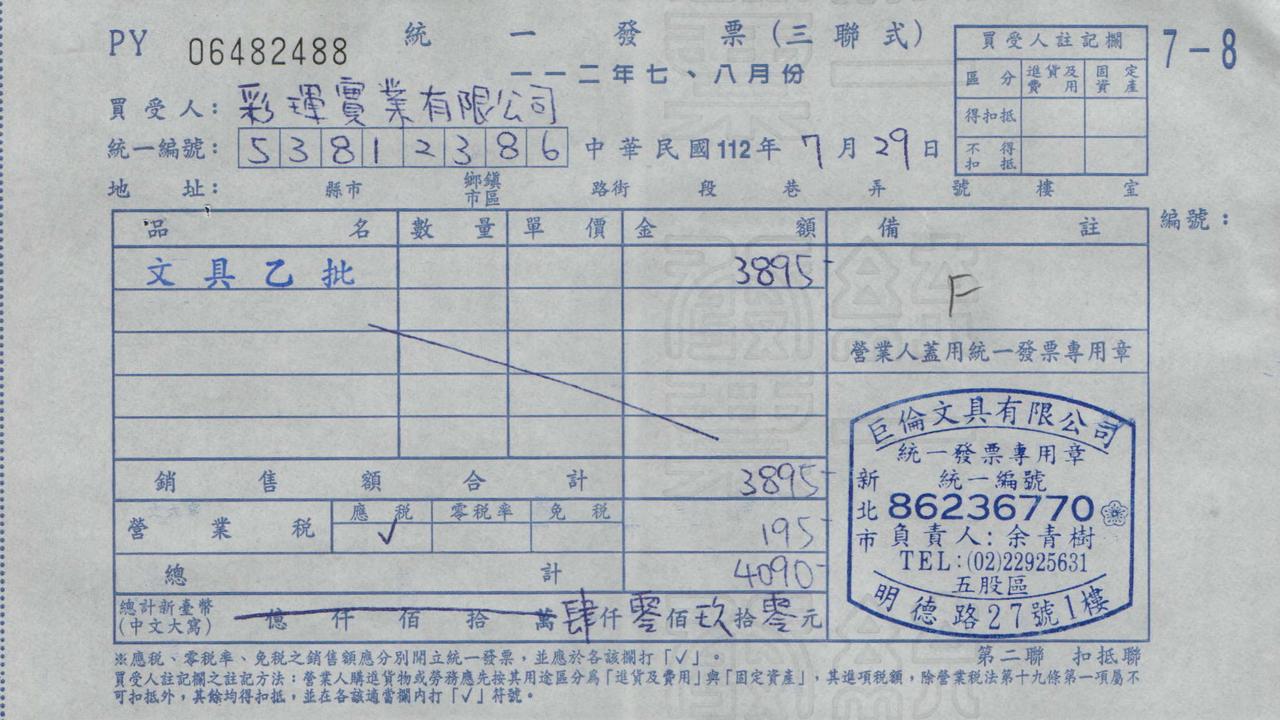 PY 06482488 統一發票(三聯式) 7-8
一一二年七、八月份
買受人: 彩琿實業有限公司
統一編號: 53812386 中華民國112年7月29日
地址: 縣市 鄉鎮市區 路街 段 巷 弄 號 樓 室
買受人註記欄
區分 進貨及費用 固定資產
得扣抵
不得扣抵
編號:
品名 數量 單價 金額 備註
文具乙批 3895 F
營業人蓋用統一發票專用章
銷售額合計 3895
營業稅 應稅 零稅率 免稅
✓ 195
總計 4090
總計新臺幣(中文大寫) 億仟佰拾萬肆仟零佰玖拾零元
巨倫文具有限公司
統一發票專用章
統一編號
86236770
新北市
負責人:余青樹
TEL:(02)22925631
五股區
明德路27號1樓
※應稅、零稅率、免稅之銷售額應分別開立統一發票,並應於各該欄打「✓」。
第二聯 扣抵聯
買受人註記欄之註記方法:營業人購進貨物或勞務應先按其用途區分為「進貨及費用」與「固定資產」,其進項稅額,除營業稅法第十九條第一項屬不
可扣抵外,其餘均得扣抵,並在各該適當欄內打「✓」符號。